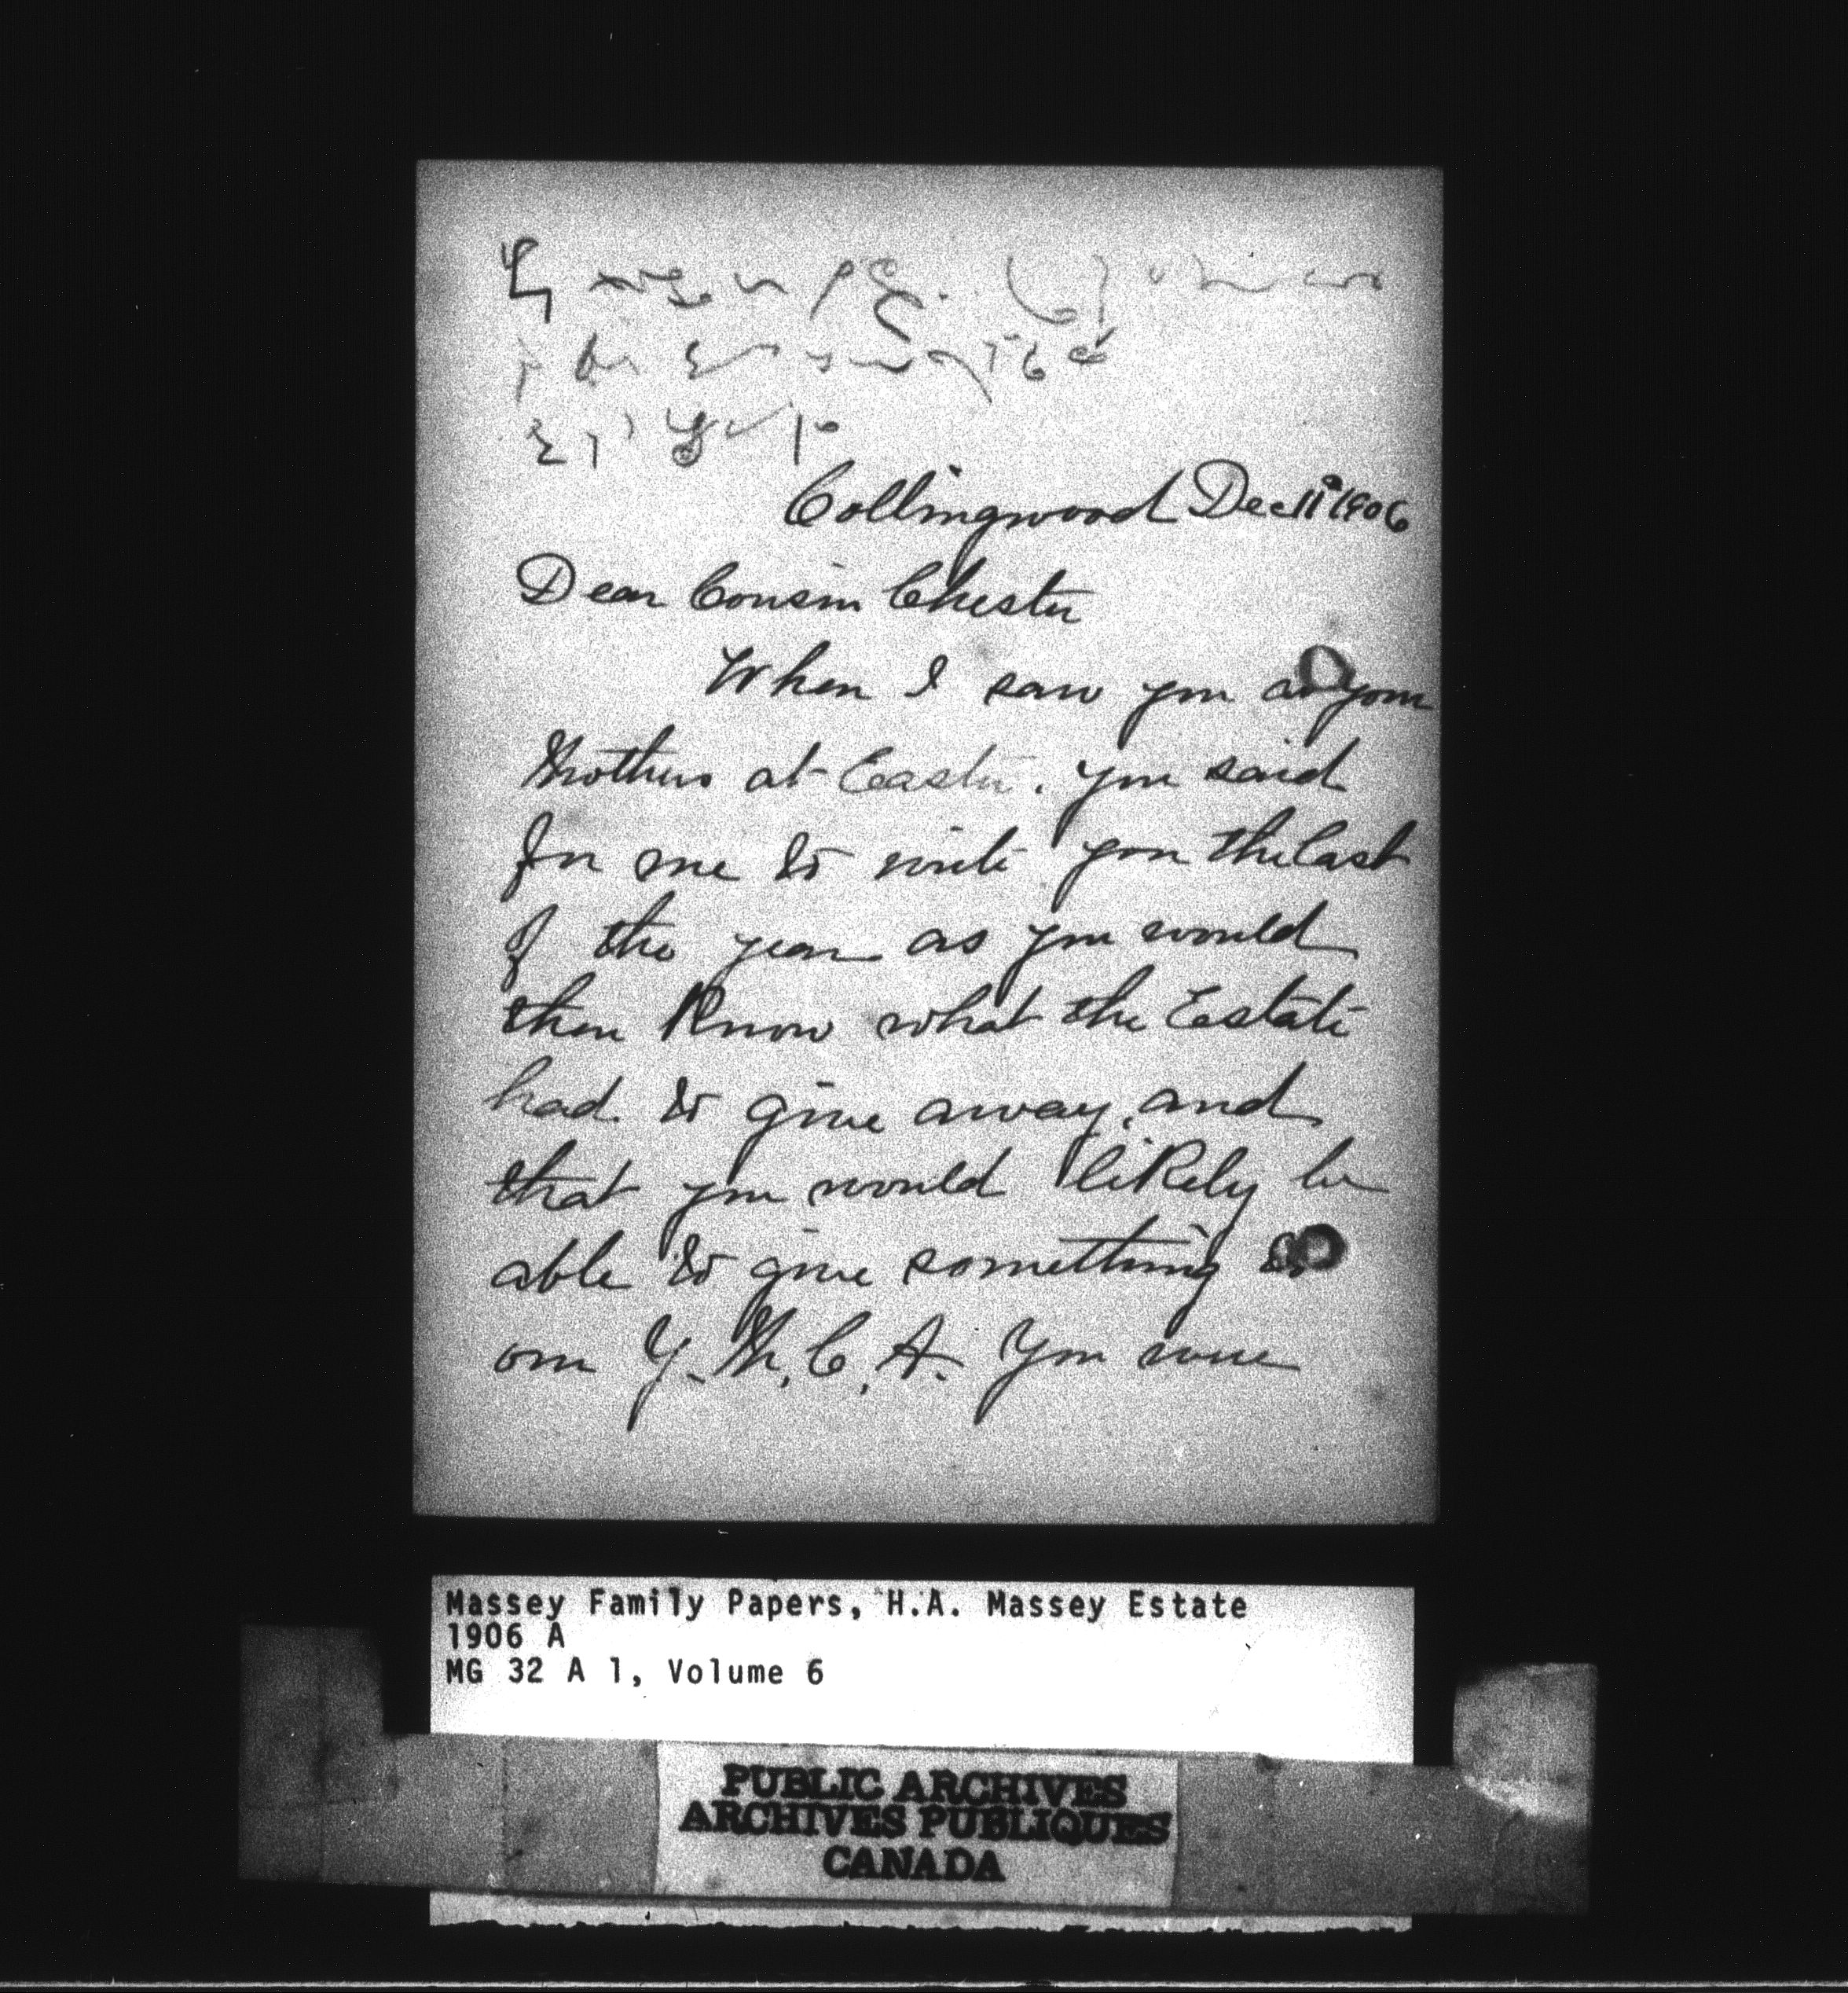 Collingwood Dec 11th 1906
Dear Cousin Chester
When I saw you at your
Mothers at Easter. you said
for me to write you the last
of the year as you would
then Know what the Estate
had to give away, and
that you would likely be
able to give something to
our Y.M.C.A. You were
Massey Family Papers, H.A. Massey Estate
1906 A
MG 32 A 1, Volume 6
PUBLIC ARCHIVES
ARCHIVES PUBLIQUES
CANADA